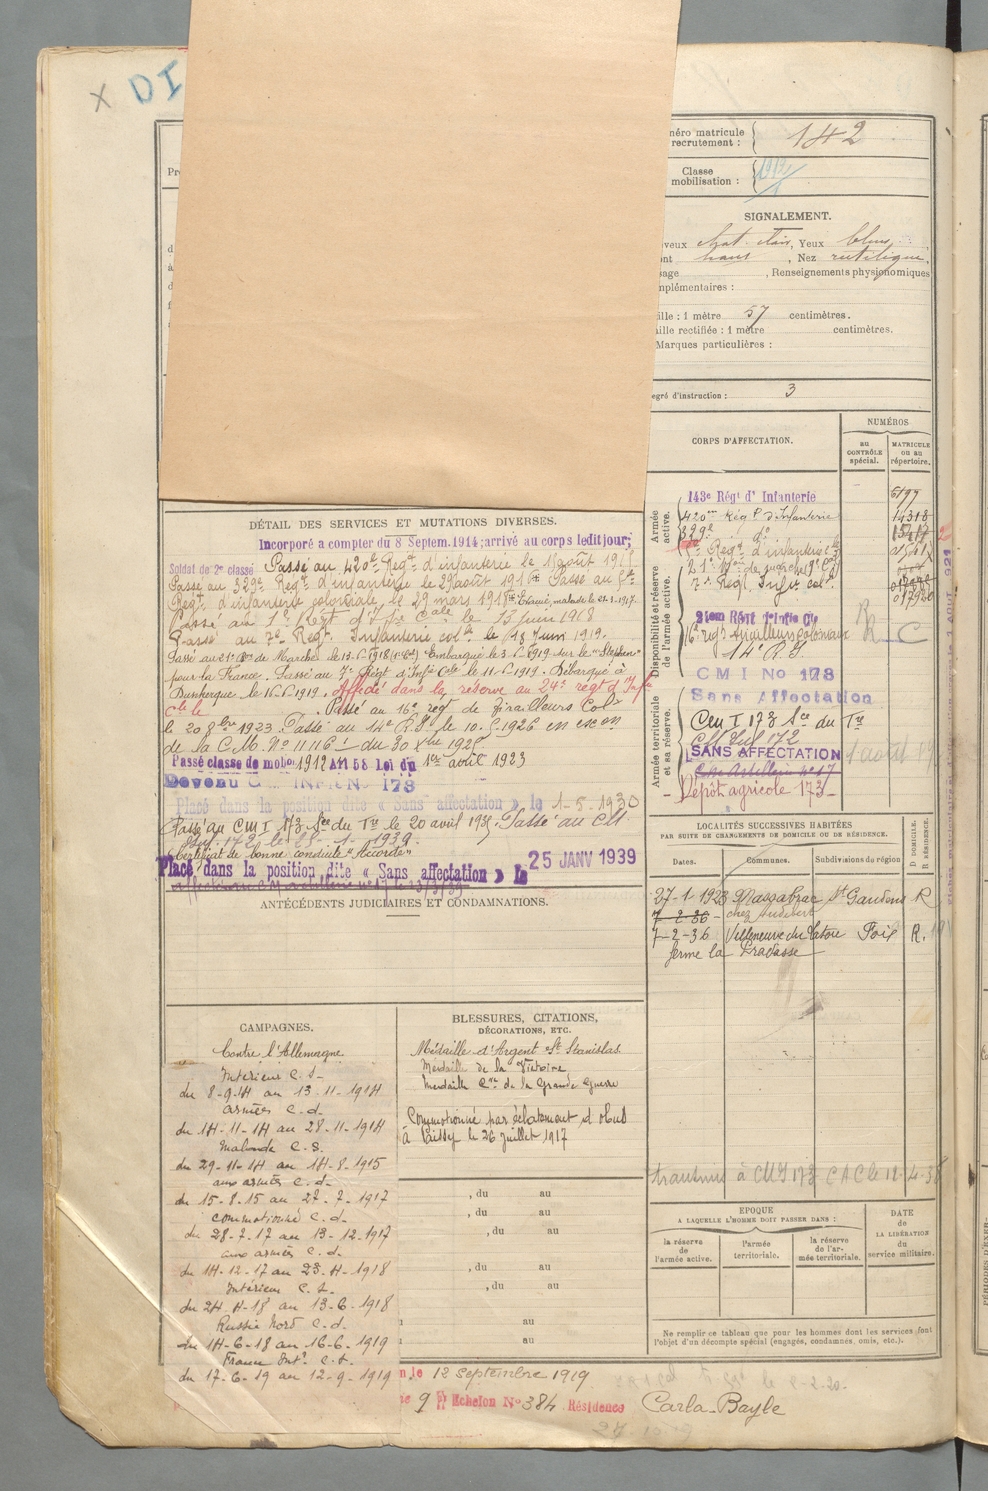 X DI
néro matricule
recrutement :
142
Classe
mobilisation :
SIGNALEMENT.
veux chat. clair, Yeux bleus,
haut , Nez rectiligne,
sage , Renseignements physionomiques
mplémentaires :
ille : 1 mètre 57 centimètres.
aille rectifiée : 1 mètre centimètres.
Marques particulières :
egré d'instruction : 3
CORPS D'AFFECTATION.
NUMÉROS
au CONTRÔLE spécial.
MATRICULE ou au répertoire.
Armée active.
143e Régt d' Infanterie
420me Régt d'Infanterie 14318
329e
Régt d'infanterie
7e Régt Infie colle
Disponibilité et réserve de l'armée active.
16e regt Tirailleurs Coloniaux
14e R.I.
R C
CMI No 173
Sans Affectation
Armée territoriale et sa réserve.
Cm I 173 Sce du Tre
SANS AFFECTATION
Dépôt agricole 173
DÉTAIL DES SERVICES ET MUTATIONS DIVERSES.
Incorporé a compter du 8 Septem. 1914; arrivé au corps ledit jour;
Soldat de 2e classe Passé au 420e Régt d'infanterie le 1er août 1915
Passé au 329e Régt d'infanterie le 29 août 1916 Passé au
Régt d'infanterie coloniale le 29 mars 1918
Passé au 1er Régt d'Infie Cale le 13 juin 1918
Passé au 7e Régt Infanterie colle le 18 Juin 1919.
Passé au 21e Bon de Marche le 13.6.1918 Embarqué le 3.6.1919 sur le "Stephen"
pour la France. Passé au 7e Régt d'Infie Cle le 11.6.1919. Débarqué à
Dunkerque le 16.6.1919. Affecté dans la réserve au 24e regt d'Infie
Cle le
Passé au 16e reg. de Tirailleurs Colx
le 20 8bre 1923 Passé au 14e R.I. le 10.5.1926 en exon
de la C.M. No 11116 du 30 Xbre 1925
Passé classe de mobon 1912 Art 58 Loi du 1er août 1923
Devenu C INFIE No 173
Placé dans la position dite « Sans affectation » le 1-5-1930
Passé au CM I 173 Sce du Tre le 20 avril 193 . Passé au CM
Inf. 172 le 25-1-1939.
Certificat de bonne conduite "Accordé"
Placé dans la position dite « Sans affectation » le 25 JANV 1939
ANTÉCÉDENTS JUDICIAIRES ET CONDAMNATIONS.
LOCALITÉS SUCCESSIVES HABITÉES
PAR SUITE DE CHANGEMENTS DE DOMICILE OU DE RÉSIDENCE.
Dates. Communes. Subdivisions de région
D DOMICILE.
R RÉSIDENCE.
27-1-1923 Massabrac St Gaudens R
7-2-36 chez Audibert
7-2-36 Villeneuve du Latou Foix R.
ferme la Pradasse
CAMPAGNES.
Contre l'Allemagne
Intérieur C.S.
du 8-9-14 au 13-11-1914
armées C.d.
du 14-11-14 au 28-11-1914
Malade C.S.
du 29-11-14 au 14-8-1915
aux armées C.d.
du 15-8-15 au 27-7-1917
commotionné C.d.
du 28-7-17 au 13-12-1917
aux armées C.d.
du 14-12-17 au 23-4-1918
Intérieur C.S.
du 24-4-18 au 13-6-1918
Russie Nord C.d.
du 14-6-18 au 16-6-1919
France Intr C.S.
du 17-6-19 au 12-9-1919
BLESSURES, CITATIONS,
DÉCORATIONS, ETC.
Médaille d'Argent St Stanislas
Médaille de la Victoire
Médaille Cve de la Grande Guerre
Commotionné par éclatement d'obus
à Paissy le 26 juillet 1917
, du au
, du au
, du au
, du au
, du au
au
au
transmis à CMI 173 CAC le 12-4-38
EPOQUE
A LAQUELLE L'HOMME DOIT PASSER DANS :
la réserve de l'armée active.
l'armée territoriale.
la réserve de l'armée territoriale.
DATE
de
LA LIBÉRATION
du
service militaire.
Ne remplir ce tableau que pour les hommes dont les services font
l'objet d'un décompte spécial (engagés, condamnés, omis, etc.).
n le 12 Septembre 1919
9 Echelon No 384 Résidence Carla-Bayle